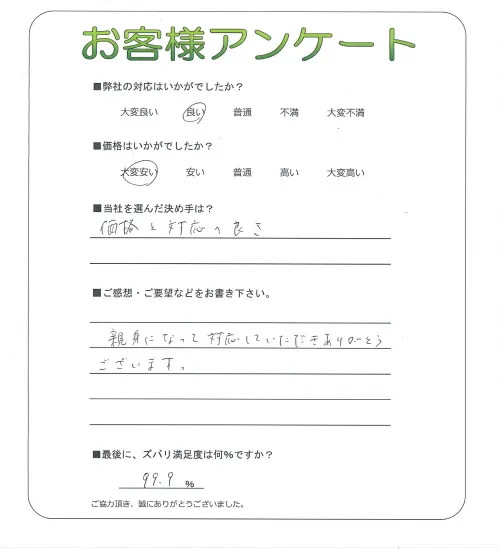 お客様アンケート
■弊社の対応はいかがでしたか？
大変良い 良い 普通 不満 大変不満
■価格はいかがでしたか？
大変安い 安い 普通 高い 大変高い
■当社を選んだ決め手は？
価格と対応の良さ
■ご感想・ご要望などをお書き下さい。
親身になって対応していただきありがとう
ございます。
■最後に、ズバリ満足度は何％ですか？
99.9 ％
ご協力頂き、誠にありがとうございました。